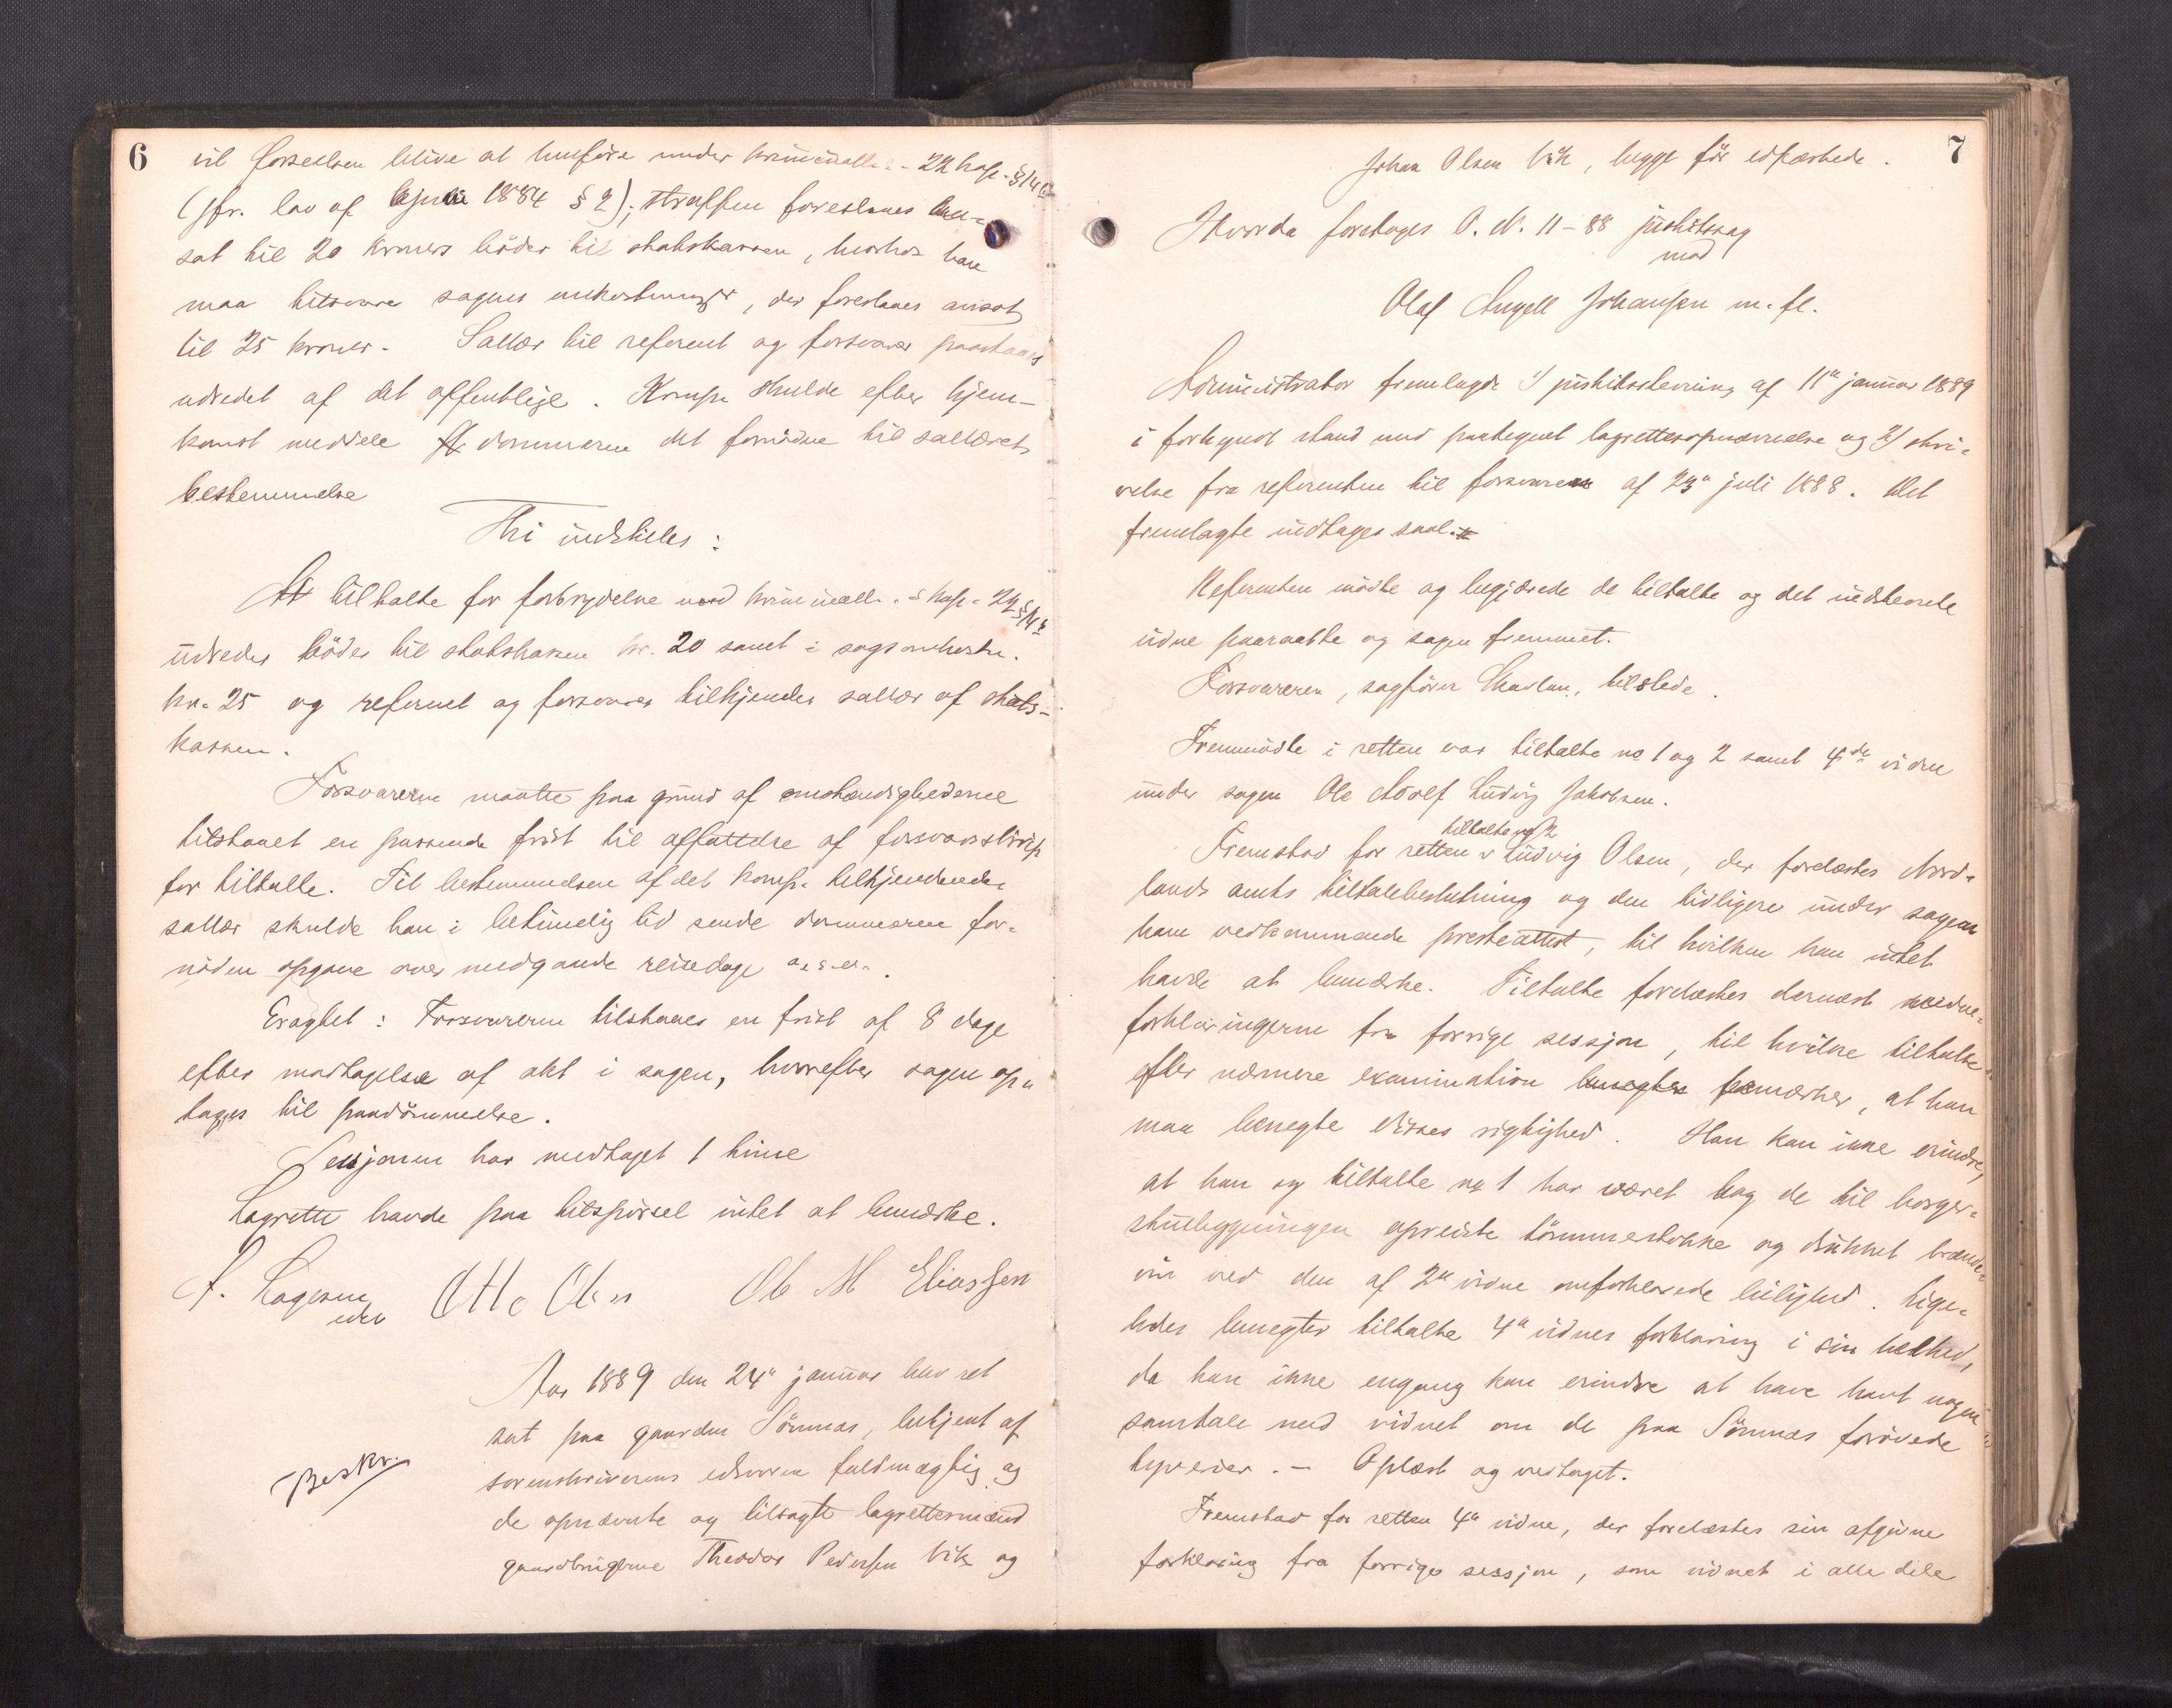 6
vil forseelsen blive at henføre under kriminall. - 22 kap. § 14
(jfr. lov af 1884 § 2); straffen foreslaaes an-
sat til 20 kroners bøder til statskassen, hvorhos han
maa tilsvare sagens omkostninger, der foreslaaes ansat
til 25 kroner. Sallær til referent og forsvarer paastaaes
udredet af det offentlige. Komp. skulde efter hjem-
komst meddele dommeren det fornødne til sallærets
bestemmelse
Thi indstilles:
At tiltalte for forbrydelse mod kriminall. kap. 22 § 14
udreder bøder til statskassen kr. 20 samt i sagsomkostn.
kr. 25 og referent og forsvarer tilkjendes sallær af stats-
kassen.
Forsvareren maatte paa grund af omstændighederne
tilstaaet en passende frist til affattelse af forsvarsskrift
for tiltalte. Til bestemmelsen af det komp. tilkjendende
sallær skulde han i betimelig tid sende dommeren for-
nøden opgave over medgaaede reisedage
Eragtet: Forsvareren tilstaaes en frist af 8 dage
efter modtagelse af akt i sagen, hvorefter sagen op-
tages til paadømmelse.
Sessjonen har medtaget 1 time
Lagrette havde paa tilspørsel intet at bemærke.
Otto Olsen Ole M Eliassen
Aar 1889 den 24de januar blev ret
sat paa gaarden Sømnæs, betjent af
sorenskriverens edsvorne fuldmægtig og
Beskr.
de opnævnte og tilsagte lagrettesmænd
gaardbrugerne Theodor Pedersen Vik og
7
Johan Olsen Vik, begge før edfæstede.
Hvorda foretoges O. N. 11-88 justitssag
mod
Olaf Angell Johansen m. fl.
Administrator fremlagde 1/ justitsstevning af 11te januar 1889
i forkyndt stand med paategnet lagrettesopnævnelse og 2/ skri-
velse fra referenten til forsvareren af 23de juli 1888. Det
fremlagte indtages saal.
Referenten mødte og begjærede de tiltalte og det indstevnte
vidne paaraabte og sagen fremmet.
Forsvareren, sagfører, tilstede.
Fremmødte i retten var tiltalte no 1 og 2 samt 4de vidne
under sagen Ole Adolf Ludvig Jakobsen.
tiltalte no 2
Fremstod for retten v Ludvig Olsen, der forelæstes Nord-
lands amts tiltalebeslutning og den tidligere under sagen
ham vedkommende presteattest, til hvilken han intet
havde at bemærke. Tiltalte forelæstes dernæst vidne-
forklaringerne fra forrige sessjon, til hvilke tiltalte
efter nærmere examination benegter bemærker, at han
maa benegte disses rigtighed. Han kan ikke erindre,
at han og tiltalte no 1 har været bag de til borger-
stuebygningen opreiste tømmerstokke og drukket brænde-
vin ved den af 2det vidne omforklarede leilighed. Lige-
ledes benegter tiltalte 4de vidnes forklaring i sin helhed,
da han ikke engang kan erindre at have havt nogen
samtale med vidnet om de paa Sømnæs forøvede
tyverier. - Oplæst og vedtaget.
Fremstod for retten 4de vidne, der forelæstes sin afgivne
forklaring fra forrige sessjon, som vidnet i alle dele